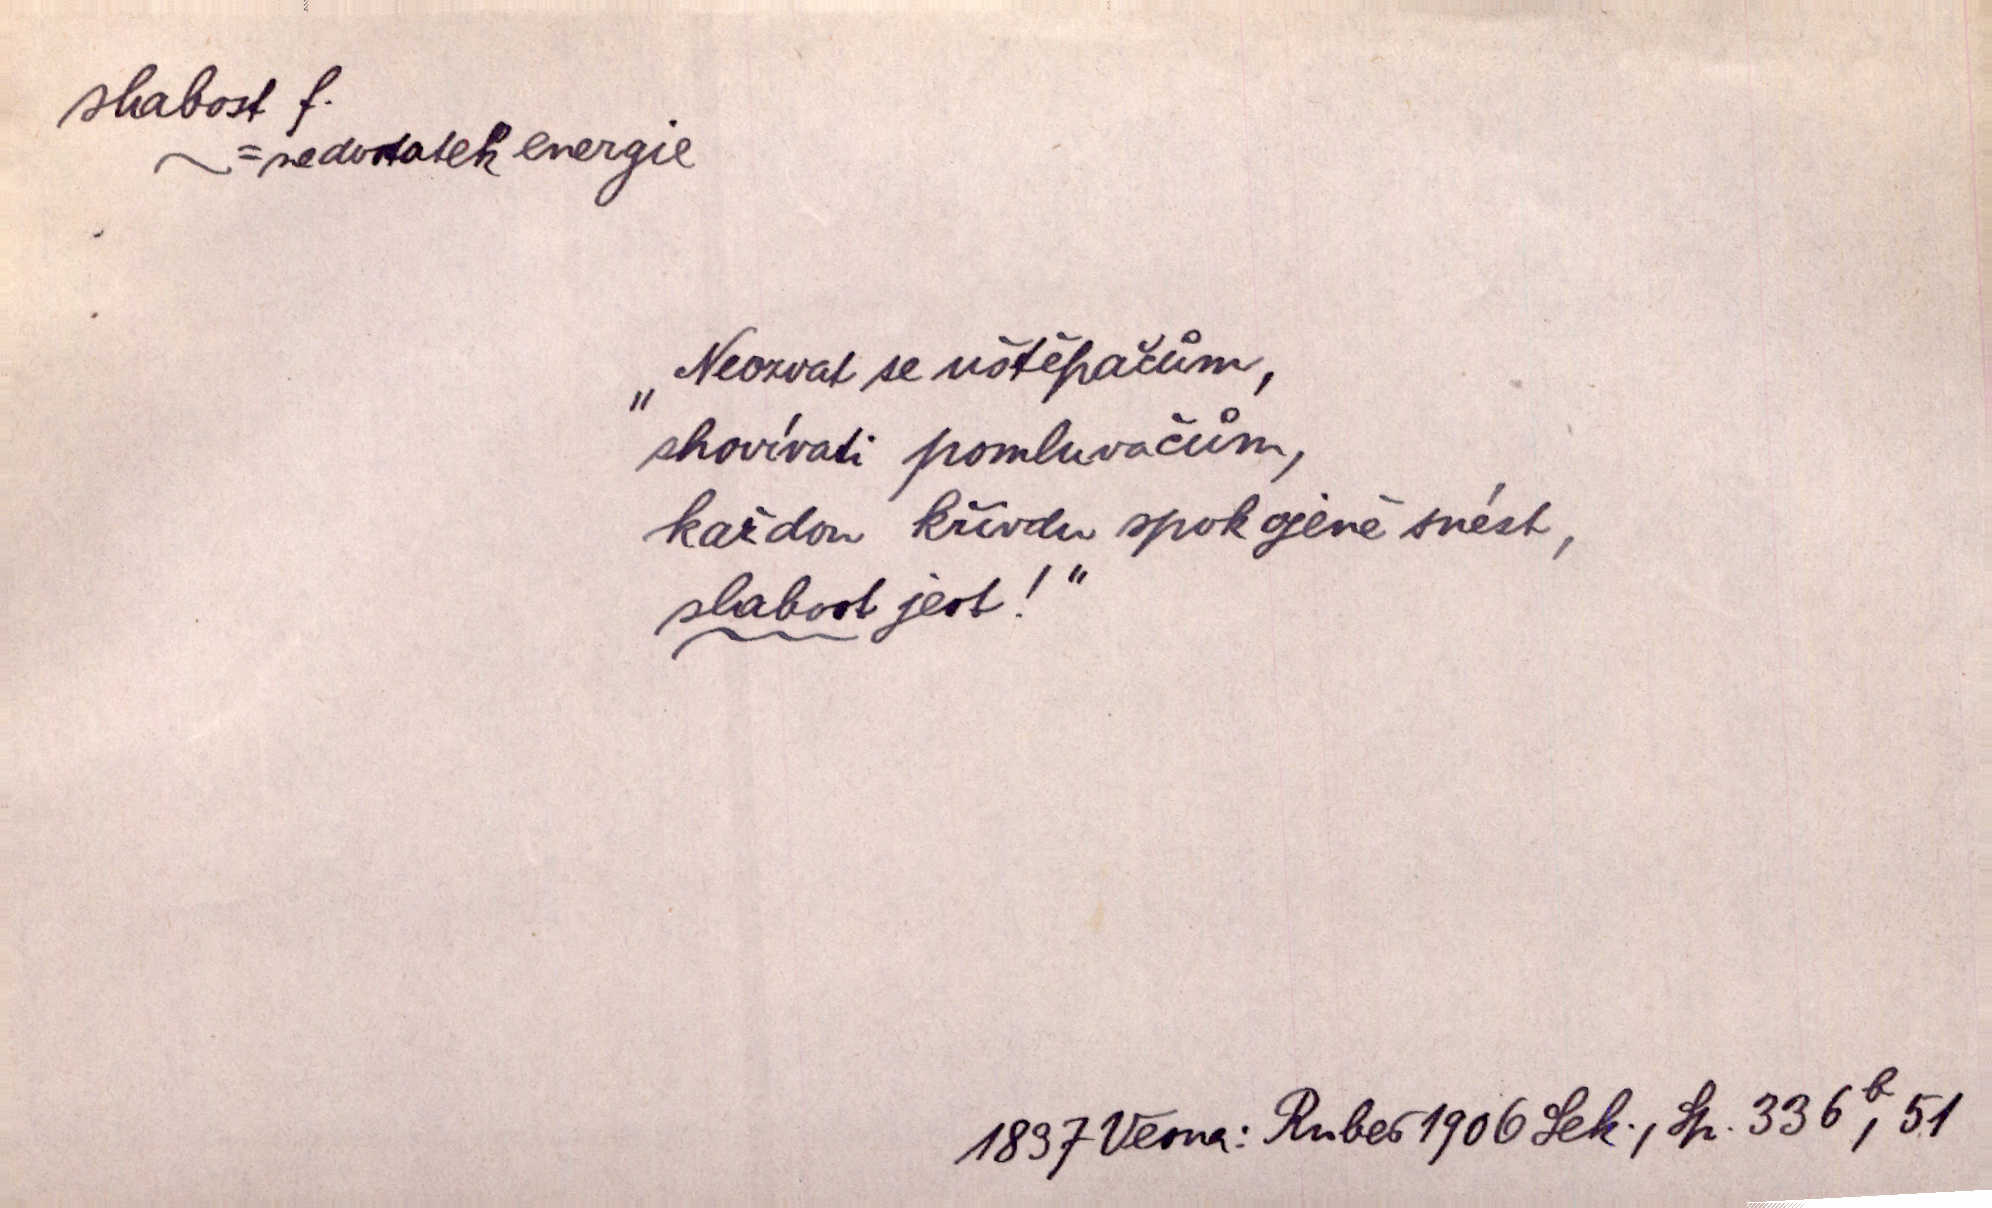 slabost f.
~ = nedostatek energie
„Neozvat se úštěpačům,
shovívati pomluvačům,
každou křivdu spokojeně snést,
slabost jest!"
1837 Vesna: Rubeš 1906 Sek., Sp. 336 b, 51